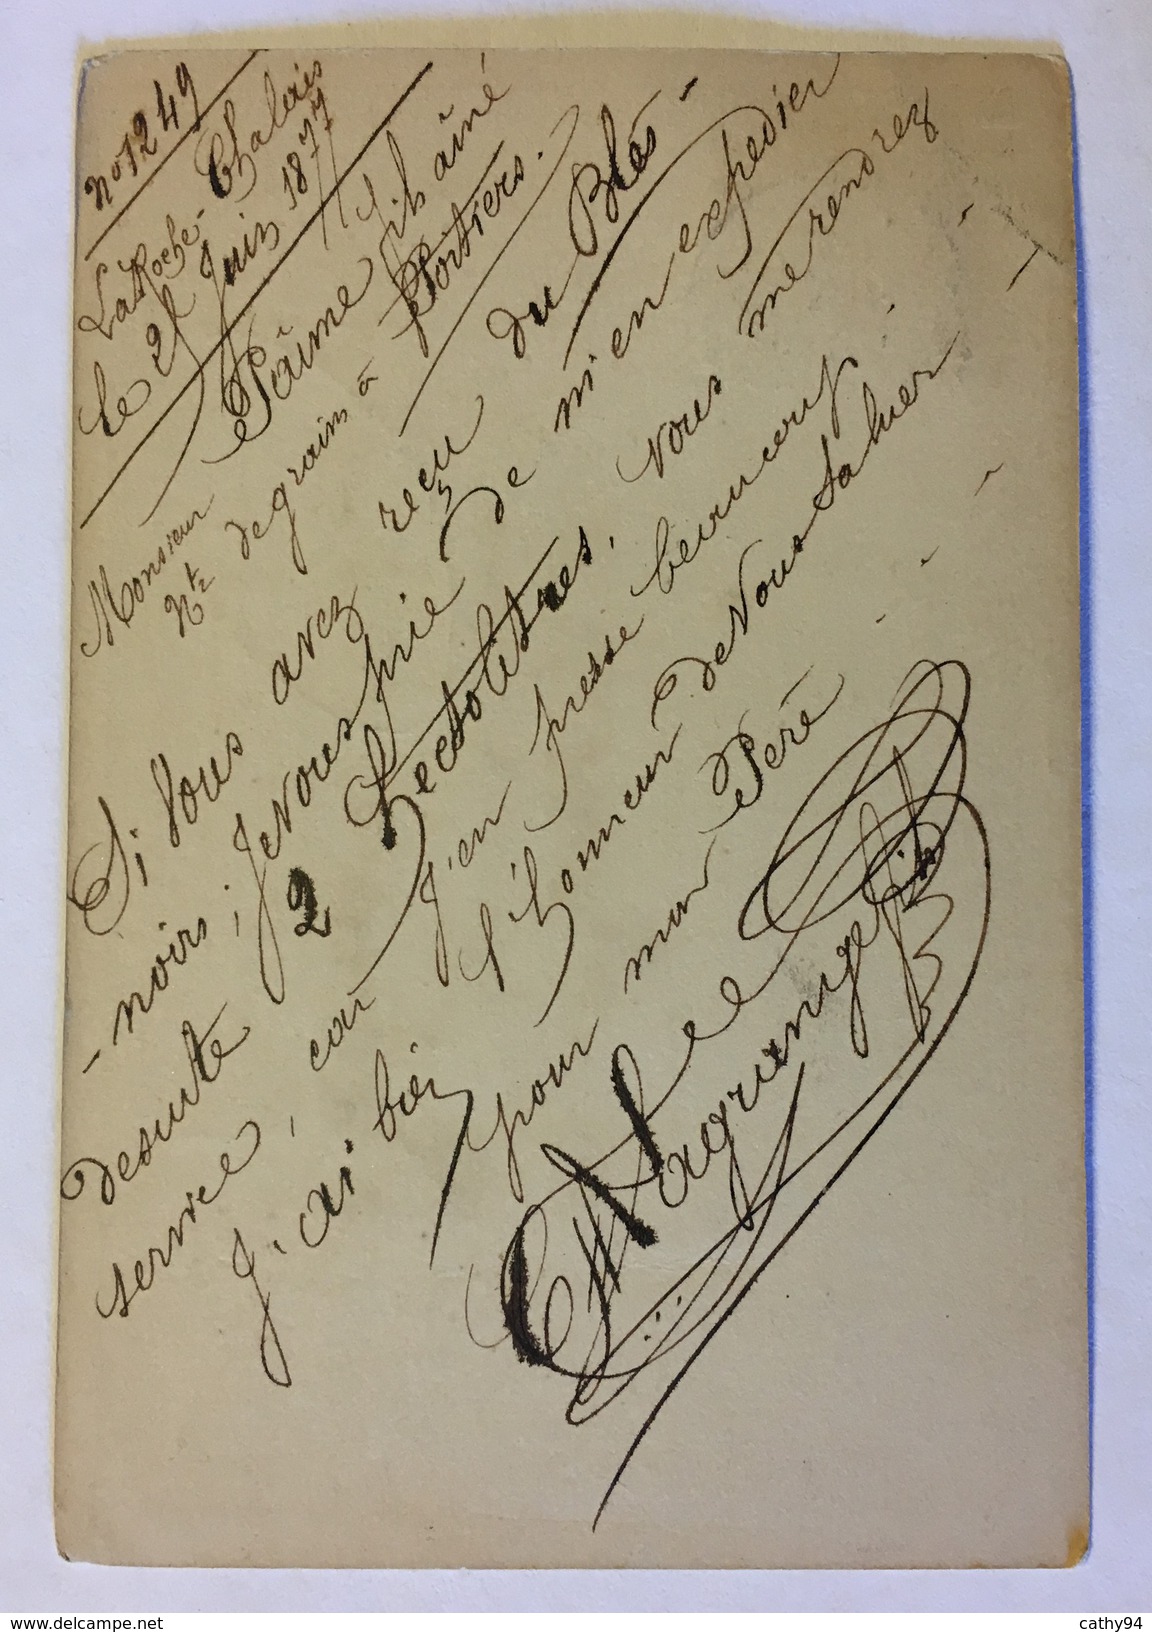 No 1249
La Roche-Chalais
le 2 Juin 1877
Monsieur Paime fils ainé
Nt de grains à Poitiers.
Si vous avez reçu du Blés-
-noirs; je vous prie de m'en expedier
desuite 2 hectolitres. vous me rendrez
service, car j'en presse beaucoup
j'ai bien l'honneur de vous saluer
pour mon Père
Lagrange fils
delcampe.net
cathy94